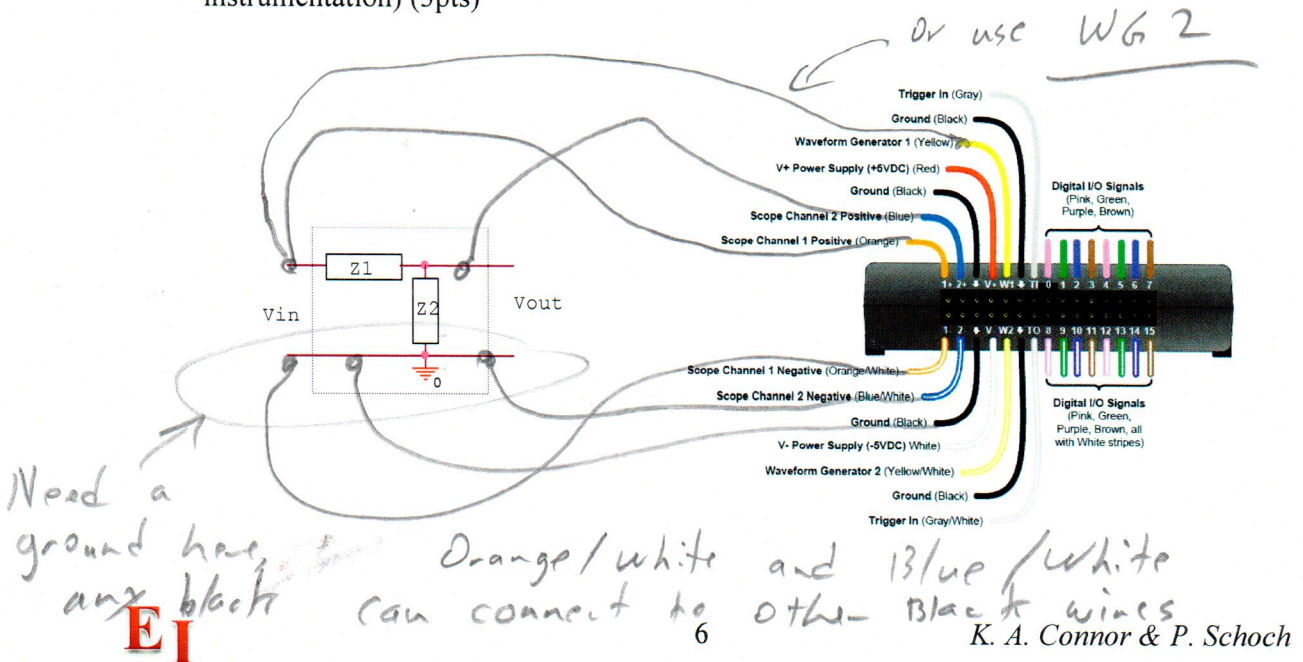 instrumentation) (3pts)
Or use WG 2
Trigger In (Gray)
Ground (Black)
Waveform Generator 1 (Yellow)
V+ Power Supply (+5VDC) (Red)
Ground (Black)
Scope Channel 2 Positive (Blue)
Scope Channel 1 Positive (Orange)
Digital I/O Signals
(Pink, Green,
Purple, Brown)
Z1
Vin
Z2
Vout
0
1+ 2+ V+ W1 TI 0 1 2 3 4 5 6 7
1- 2- V- W2 TO 8 9 10 11 12 13 14 15
Scope Channel 1 Negative (Orange/White)
Scope Channel 2 Negative (Blue/White)
Ground (Black)
V- Power Supply (-5VDC) White)
Waveform Generator 2 (Yellow/White)
Ground (Black)
Trigger In (Gray/White)
Digital I/O Signals
(Pink, Green,
Purple, Brown, all
with White stripes)
Need a
ground here,
any black
Orange/white and Blue/White
can connect to other Black wires
EI
6
K. A. Connor & P. Schoch